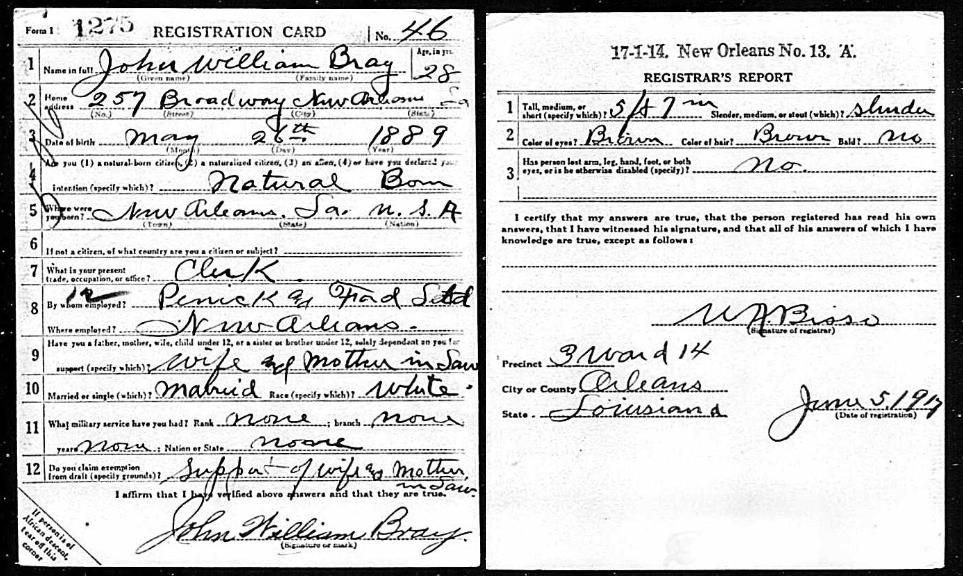 Form 1 1275 REGISTRATION CARD No. 46
1 Name in full John William Bray Age, in yrs. 28
(Given name) (Family name)
2 Home address 257 Broadway New Orleans La
(No.) (Street) (City) (State)
3 Date of birth May 26th 1889
(Month) (Day) (Year)
4 Are you (1) a natural-born citizen, (2) a naturalized citizen, (3) an alien, (4) or have you declared your
intention (specify which)? Natural Born
5 Where were you born? New Orleans. La. U. S. A
(Town) (State) (Nation)
6 If not a citizen, of what country are you a citizen or subject?
7 What is your present trade, occupation, or office? Clerk
8 By whom employed? 12 Penick & Ford Ltd
Where employed? New Orleans.
9 Have you a father, mother, wife, child under 12, or a sister or brother under 12, solely dependent on you for
support (specify which)? Wife & Mother in Law
10 Married or single (which)? Married Race (specify which)? White
11 What military service have you had? Rank none ; branch none
years none ; Nation or State none
12 Do you claim exemption from draft (specify grounds)? Support of wife & Mother
in Law.
I affirm that I have verified above answers and that they are true.
John William Bray.
(Signature or mark)
If person is of
African descent,
tear off this
corner
17-1-14. New Orleans No. 13. A.
REGISTRAR'S REPORT
1 Tall, medium, or short (specify which)? 5 ft 7 in Slender, medium, or stout (which)? Slender
2 Color of eyes? Brown Color of hair? Brown Bald? No
3 Has person lost arm, leg, hand, foot, or both
eyes, or is he otherwise disabled (specify)? No.
I certify that my answers are true, that the person registered has read his own
answers, that I have witnessed his signature, and that all of his answers of which I have
knowledge are true, except as follows:
Bisso
(Signature of registrar)
Precinct 3 Ward 14
City or County Orleans
State Louisiana June 5, 1917
(Date of registration)